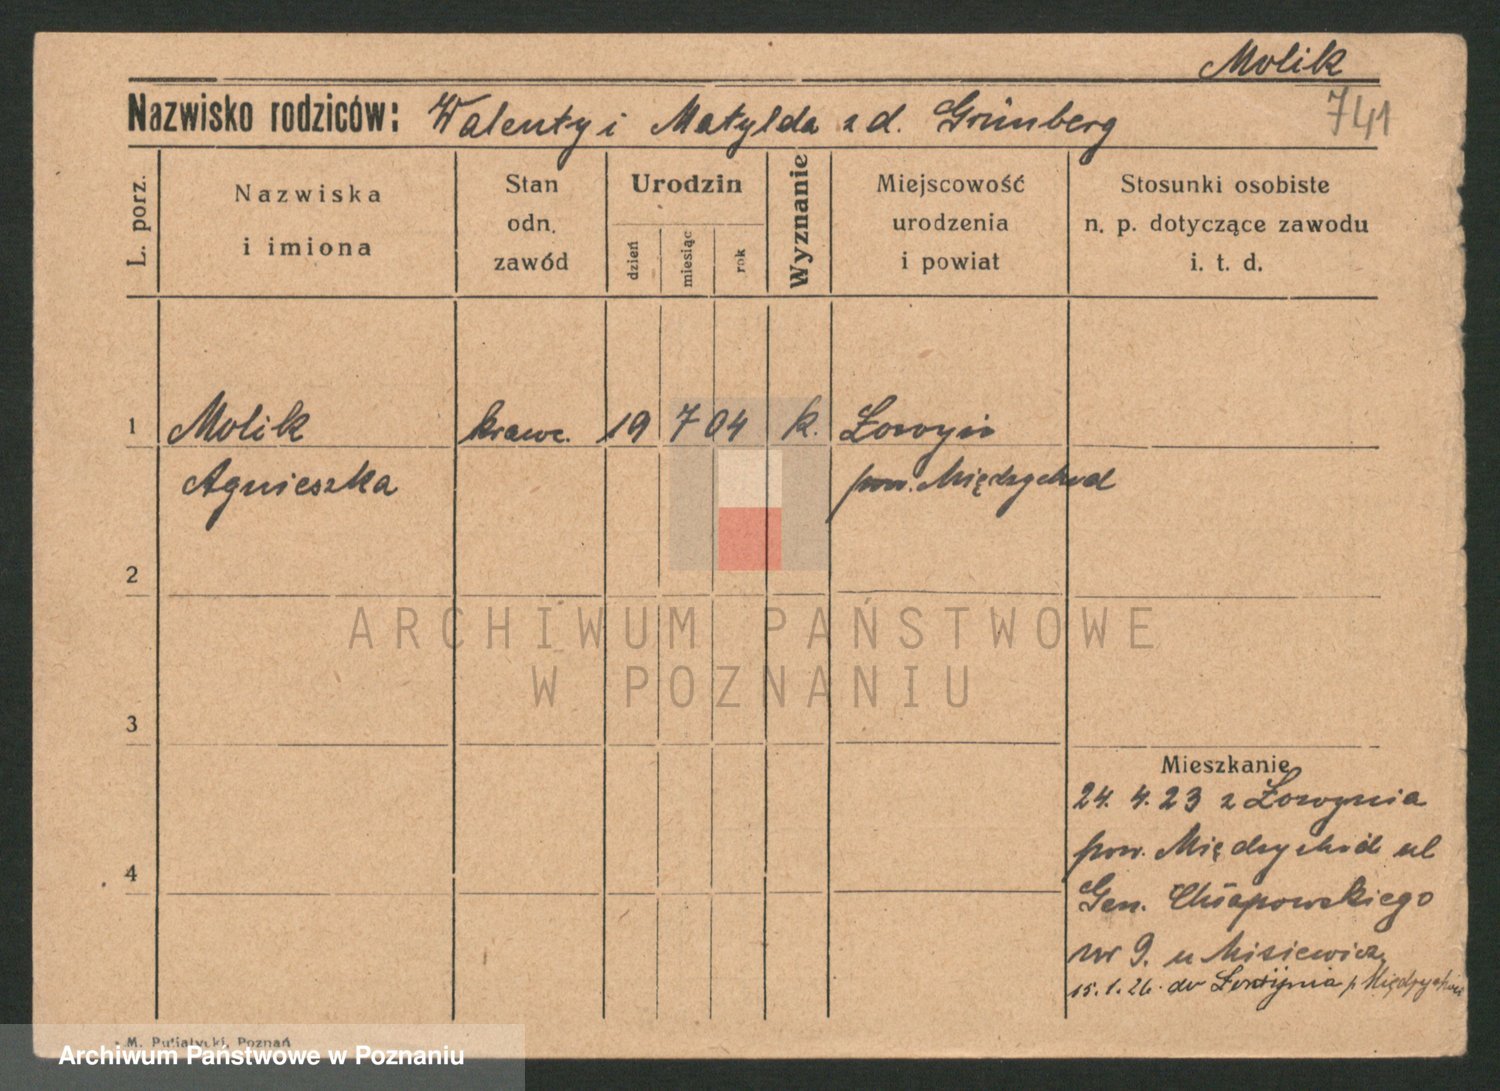 Molik
741
Nazwisko rodziców: Walenty i Matylda z d. Grünberg
L. porz.
Nazwiska
i imiona
Stan
odn.
zawód
Urodzin
dzień
miesiąc
rok
Wyznanie
Miejscowość
urodzenia
i powiat
Stosunki osobiste
n. p. dotyczące zawodu
i. t. d.
1 Molik krawc. 19 7 04 k. Łowyń
Agnieszka pow. Międzychód
2
ARCHIWUM PAŃSTWOWE
W POZNANIU
3
Mieszkanie
24. 4. 23 z Łowynia
pow. Międzychód ul
4
Gen. Chłapowskiego
nr 9. u Misiewicz
15. 1. 26. do Łowynia p. Międzychód
M. Putiatycki, Poznań
Archiwum Państwowe w Poznaniu